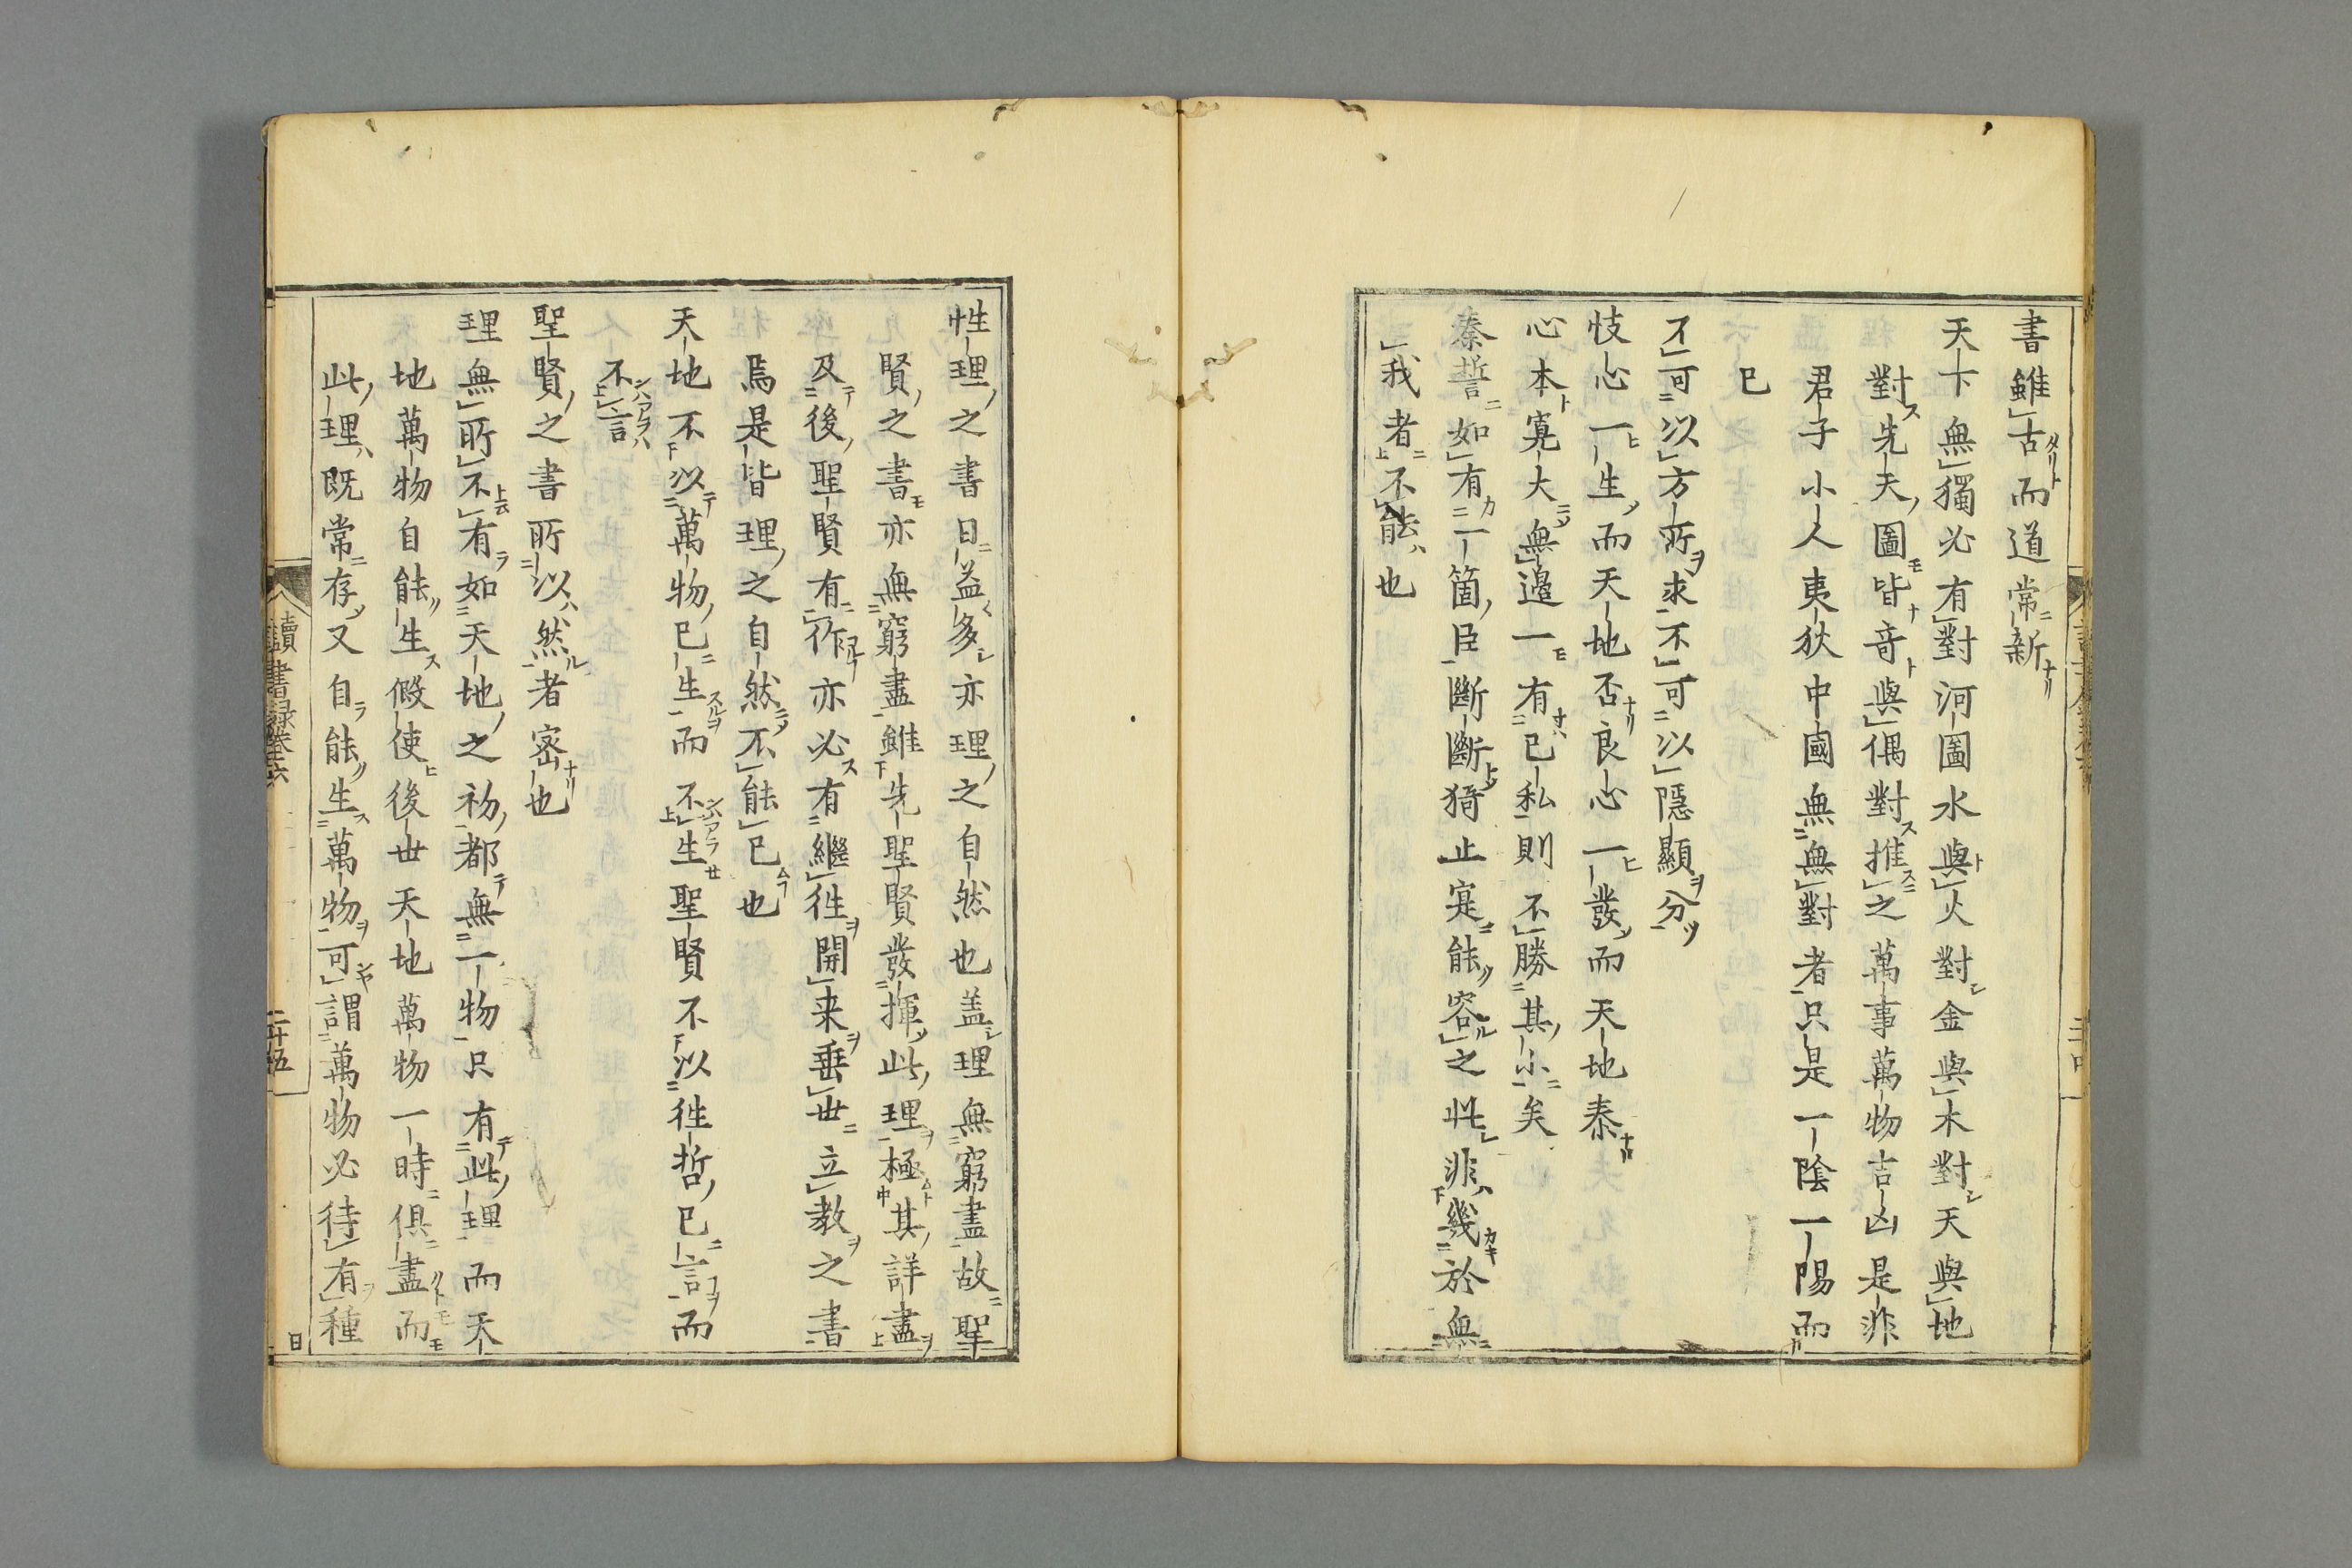 書雖古而道常新
天下無獨必有對河圖水與火對金與木對天與地
對先天圖皆竒與偶對推之萬事萬物吉凶是非
君子小人夷狄中國無無對者只是一陰一陽而
已
不可以方所求不可以隱顯分
忮心一生而天地否良心一發而天地泰
心本寬大無邉一有已私則不勝其小矣
秦誓如有一箇臣斷斷猗止寔能容之此非幾於無
我者不能也
性理之書日益多亦理之自然也盖理無窮盡故聖
賢之書亦無窮盡雖先聖賢發揮此理極其詳盡
及後聖賢有作亦必有繼徃開来垂世立教之書
焉是皆理之自然不能已也
天地不以萬物已生而不生聖賢不以徃哲已言而
不言
聖賢之書所以然者密也
理無所不有如天地之初都無一物只有此理而天
地萬物自能生假使後世天地萬物一時俱盡而
此理既常存又自能生萬物可謂萬物必待有種
讀書録卷六
二十五